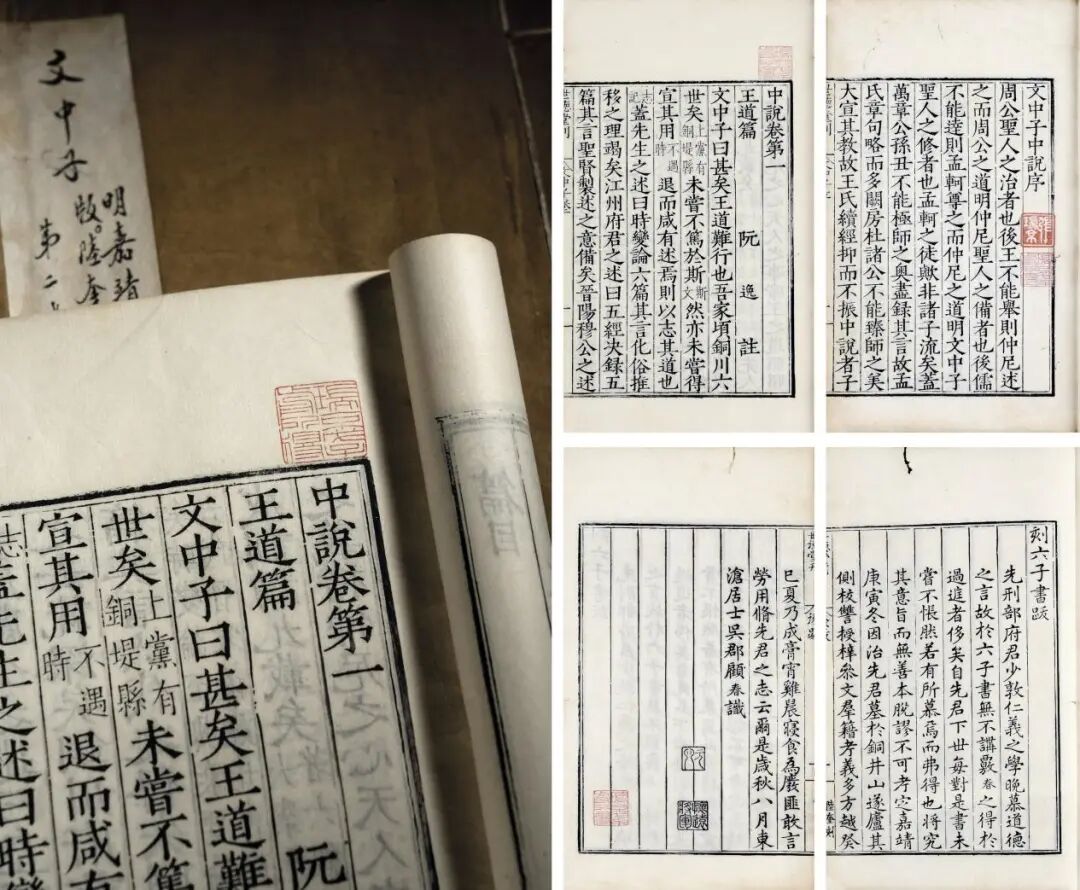 文中子
明嘉靖
版。陸奎
第二
中說卷第一
王道篇
阮
文中子曰甚矣王道難
世矣上黨有銅堤縣未嘗不篤
宣其用不遇時退而咸有
志蓋先生之述曰時變
篇目
中說卷第一
王道篇 阮逸註
文中子曰甚矣王道難行也吾家頃銅川六
世矣上黨有銅堤縣未嘗不篤於斯斯文然亦未嘗得
宣其用不遇時退而咸有述焉則以志其道也
志記蓋先生之述曰時變論六篇其言化俗推
移之理竭矣江州府君之述曰五經決錄五
篇其言聖賢製述之意備矣晉陽穆公之述
世德堂刊
文中子中說序
周公聖人之治者也後王不能舉則仲尼述
之而周公之道明仲尼聖人之備者也後儒
不能達則孟軻尊之而仲尼之道明文中子
聖人之修者也孟軻之徒歟非諸子流矣蓋
萬章公孫丑不能極師之奧盡録其言故孟
氏章句略而多闕房杜諸公不能臻師之美
大宣其教故王氏續經抑而不振中說者子
世德堂刊
刻六子書跋
先刑部府君少敦仁義之學晚慕道德
之言故於六子書無不講覈春之得於
過逰者侈矣自先君下世每對是書未
嘗不悵然若有所慕焉而弗得也將究
其意旨而無善本脫謬不可考定嘉靖
庚寅冬因治先君墓於銅井山遂廬其
側校讐授梓參文羣籍考義多方越癸
巳夏乃成膏宵雞晨寢食為廢匪敢言
勞用脩先君之志云爾是歲秋八月東
滄居士吳郡顧春識